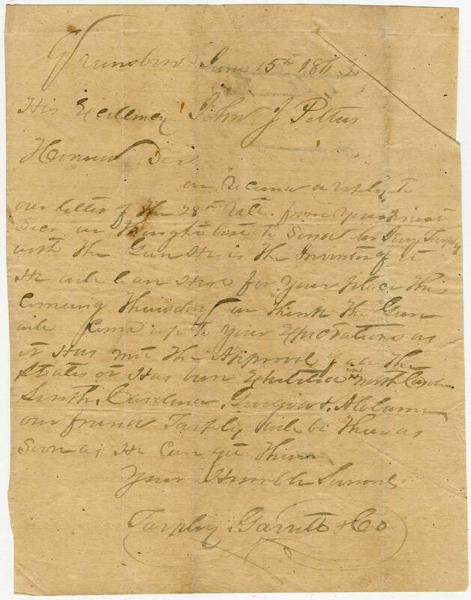 Greensboro June 15th 186
His Excellency John J Pettus
Honored Sir
in
our letter of the 28th Ult. from your
Sir we thought best to Send
with the Gun He is the Inventor of it
He will leave Here for Your place this
Coming Thursday we think the Gun
will Come up to your Expectations as
it Has met the Approval of all the
States it Has been Exhibited in North Carolina
South Carolina Georgia & Alabama
our friend Tarpley will be there as
Soon as He Can get there
Your Humble Servants
Tarpley Garrett & Co